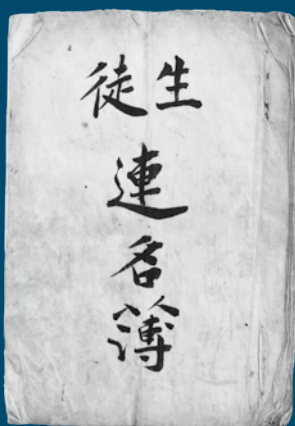 生徒
連名簿